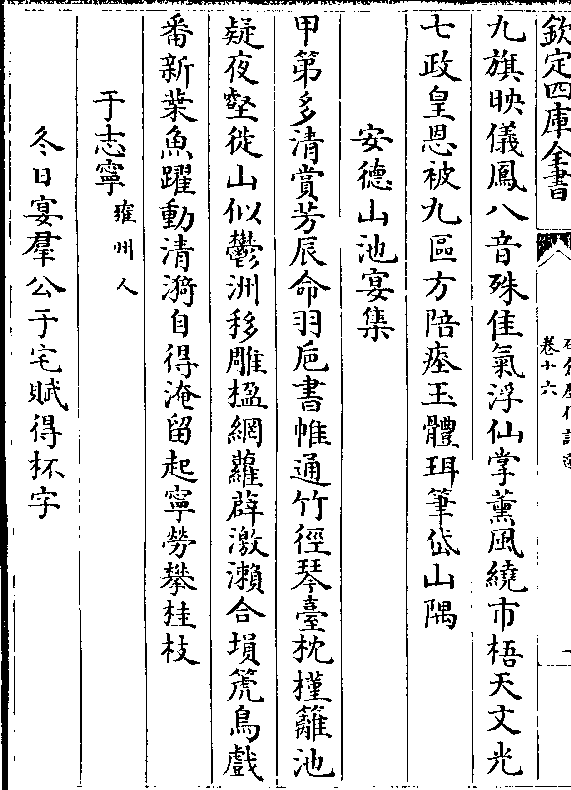 欽定四庫全書
卷十六
九旗映儀鳳八音殊佳氣浮仙掌薰風繞市梧天文光
七政皇恩被九區方陪瘞玉體珥筆岱山隅
安德山池宴集
甲第多清賞芳辰命羽巵書帷通竹徑琴臺枕槿籬池
疑夜壑徙山似鬱洲移雕楹網蘿薜激瀨合塤箎鳥戲
番新葉魚躍動清漪自得淹留起寧勞攀桂枝
于志寧雍州人
冬日宴羣公于宅賦得杯字